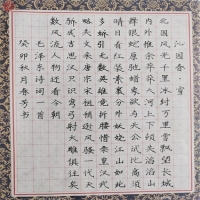 沁园春雪
北国风光千里冰封万里雪飘望长城
内外惟余莽莽大河上下顿失滔滔山
舞银蛇原驰蜡象欲与天公试比高须
晴日看红装素裹分外妖娆江山如此
多娇引无数英雄竞折腰惜秦皇汉武
略输文采唐宗宋祖稍逊风骚一代天
骄成吉思汗只识弯弓射大雕俱往矣
数风流人物还看今朝
毛泽东诗词一首
癸卯秋月春号书